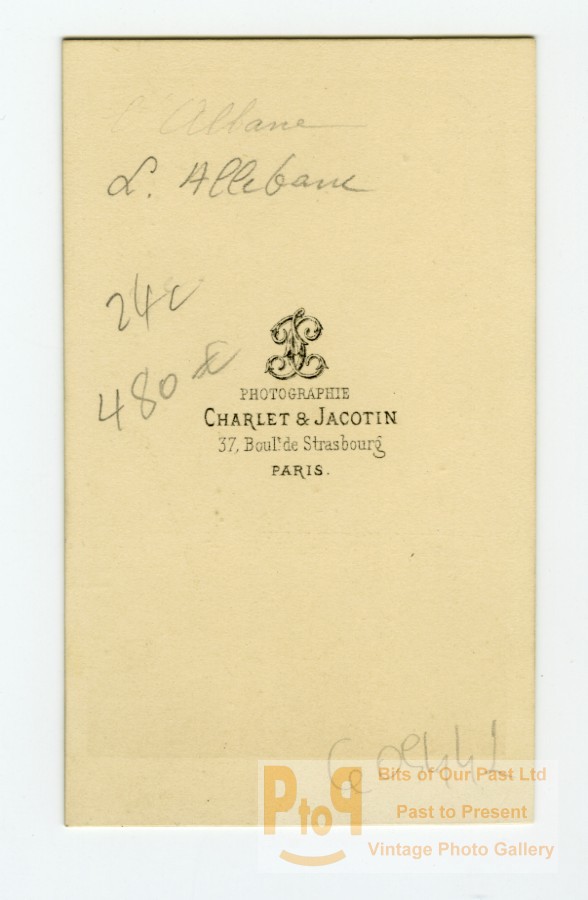 L'Albane
L. Allebane
24
480
PHOTOGRAPHIE
CHARLET & JACOTIN
37, Boulᵈ de Strasbourg
PARIS.
PtoP
Bits of Our Past Ltd
Past to Present
Vintage Photo Gallery